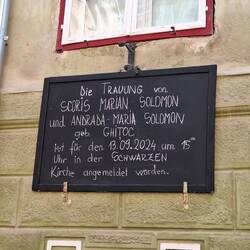 Die TRAUUNG von
SCORȚS MARIAN SOLOMON
und ANDRADA-MARIA SOLOMON
geb. GHIȚOC
ist für den 13.09.2024 um 15⁰⁰
Uhr in der SCHWARZEN
Kirche angemeldet worden.